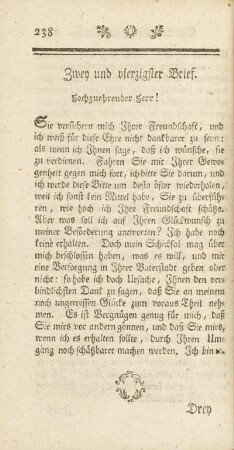 238
Zwey und vierzigster Brief.
Hochzuehrender Herr!
Sie versichern mich Ihrer Freundschaft, und
ich weiß für diese Ehre nicht dankbarer zu seyn:
als wenn ich Ihnen sage, daß ich wünsche, sie
zu verdienen. Fahren Sie mit Ihrer Gewo-
genheit gegen mich fort, ich bitte Sie darum, und
ich werde diese Bitte um desto öfter wiederholen,
weil ich sonst kein Mittel habe, Sie zu überfüh-
ren, wie hoch ich Ihre Freundschaft schätze.
Aber was soll ich auf Ihren Glückwunsch zu
meiner Beförderung antworten? Ich habe noch
keine erhalten. Doch mein Schicksal mag über
mich beschlossen haben, was es will, und mir
eine Versorgung in Ihrer Vaterstadt geben oder
nicht: so habe ich doch Ursache, Ihnen den ver-
bindlichsten Dank zu sagen, daß Sie an meinem
noch ungewissen Glücke zum voraus Theil neh-
men. Es ist Vergnügen genug für mich, daß
Sie mirs vor andern gönnen, und daß Sie mirs,
wenn ich es erhalten sollte, durch Ihren Um-
gang noch schätzbarer machen werden. Ich bin ꝛc.
Drey